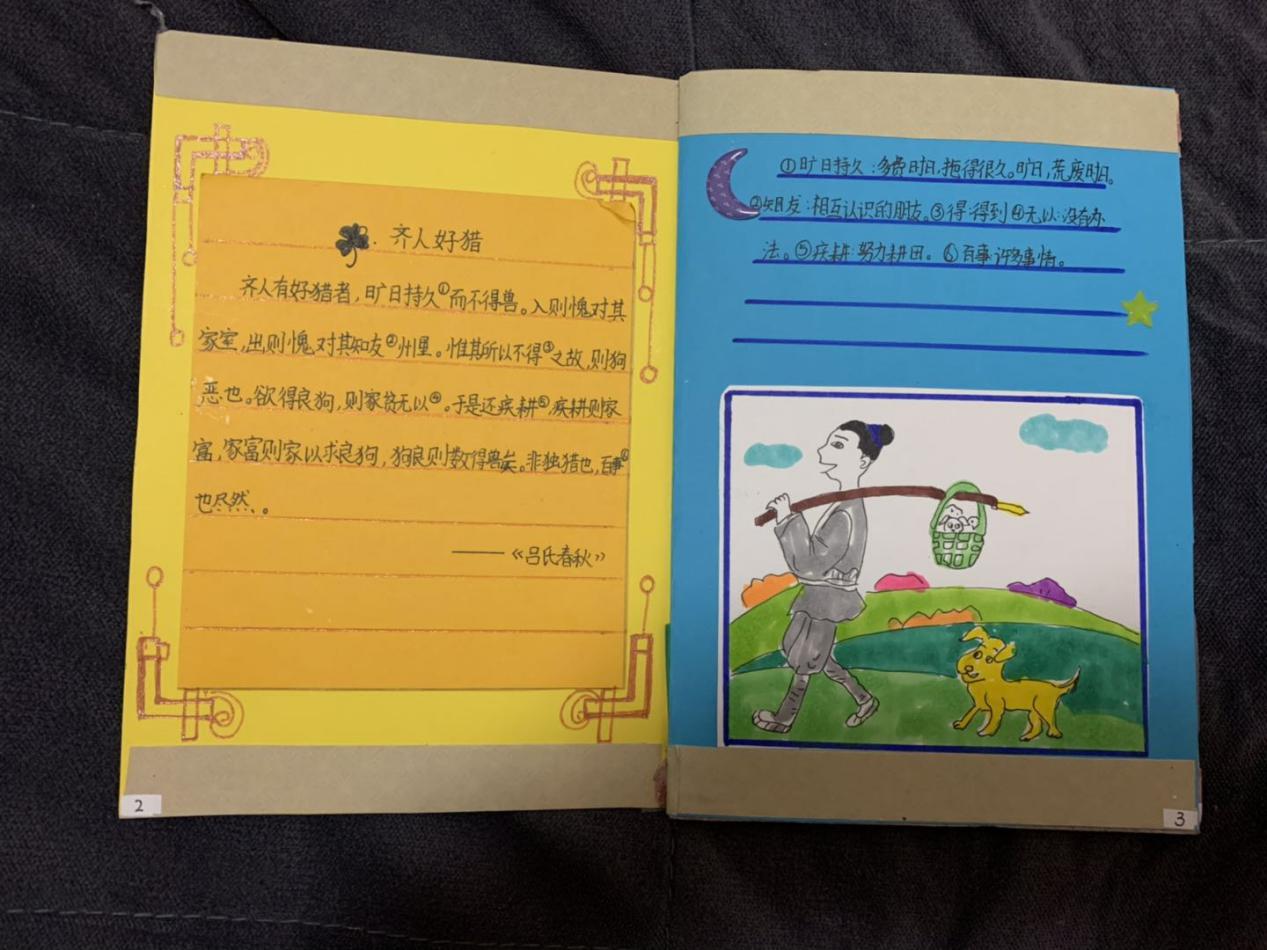 齐人好猎
齐人有好猎者，旷日持久①而不得兽。入则愧对其
家室，出则愧对其知友②州里。惟其所以不得③之故，则狗
恶也。欲得良狗，则家贫无以④。于是还疾耕⑤，疾耕则家
富，家富则家以求良狗，狗良则数得兽矣。非独猎也，百事⑥
也尽然、。
——《吕氏春秋》
2
①旷日持久：多费时日，拖得很久。旷日，荒废时日。
②知友：相互认识的朋友。③得：得到④无以：没有办
法。⑤疾耕：努力耕田。⑥百事：许多事情。
3